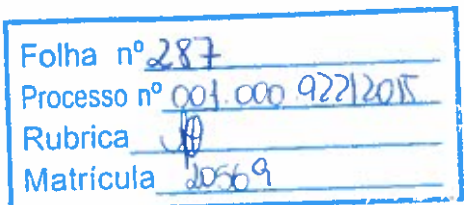 Folha nº 287
Processo nº 001.000.922/2015
Rubrica
Matrícula 20569